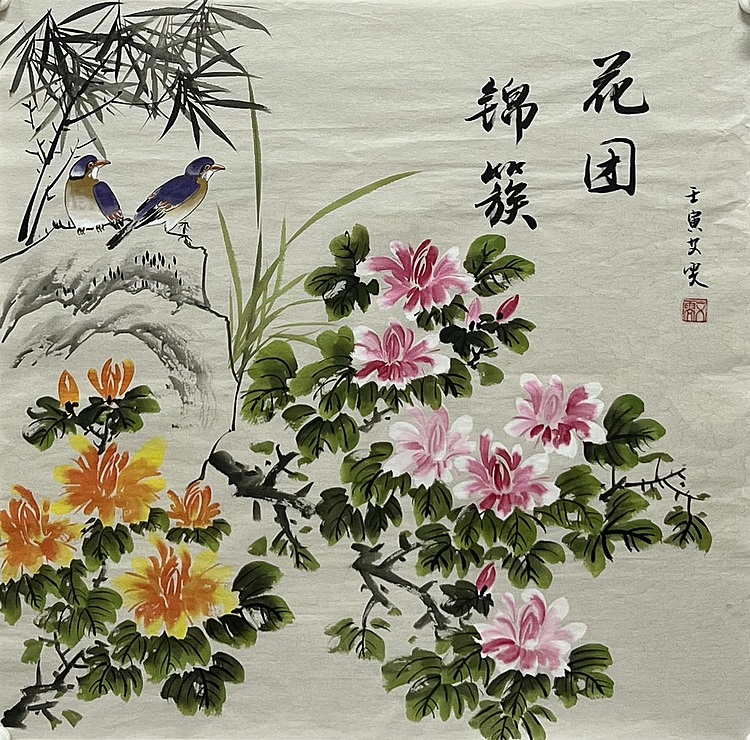 花团
锦簇
壬寅文雯